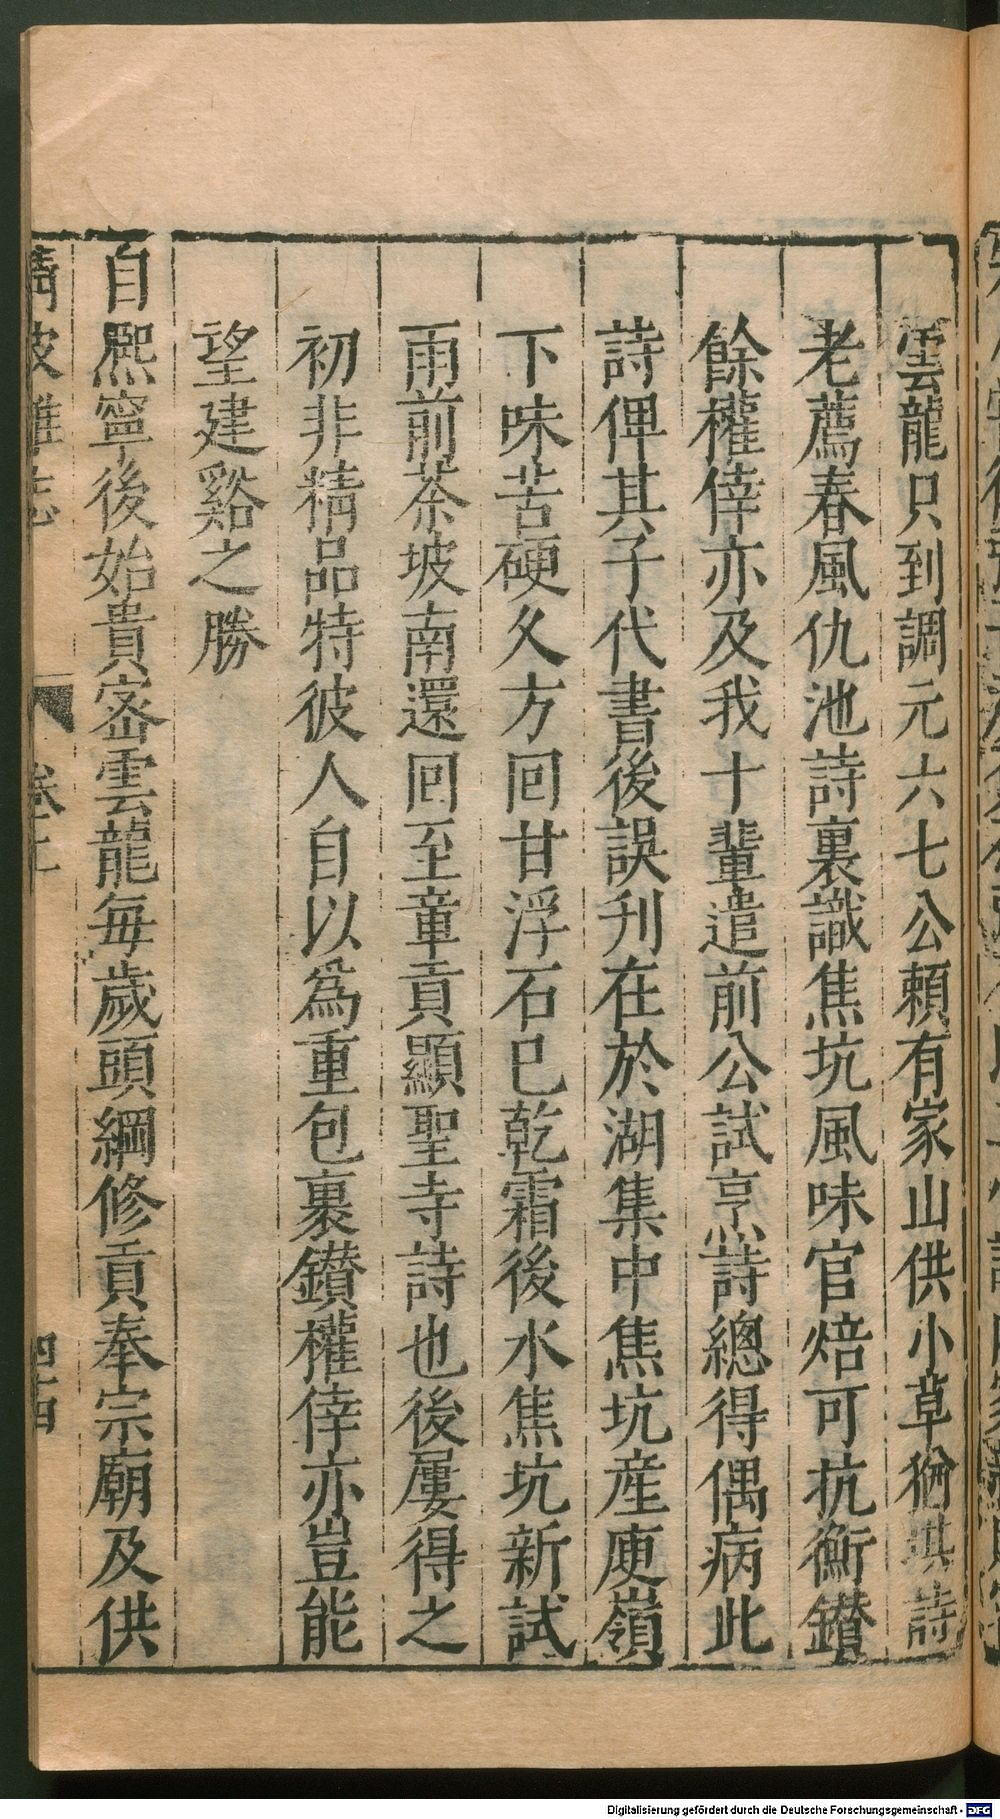 雲龍只到調元六七公頼有家山供小草猶堪詩
老薦春風仇池詩裏識焦坑風味官焙可抗衡鑚
餘權倖亦及我十輩遣前公試烹詩總得偶病此
詩俾其子代書後誤刋在於湖集中焦坑産庾嶺
下味苦硬久方回甘浮石已乾霜後水焦坑新試
雨前茶坡南還回至章貢顯聖寺詩也後屢得之
初非精品特彼人自以爲重包裹鑚權倖亦豈能
望建谿之勝
自熈寧後始貴宻雲龍毎歲頭綱修貢奉宗廟及供
清波雜志 卷上 四百
Digitalisierung gefördert durch die Deutsche Forschungsgemeinschaft - DFG